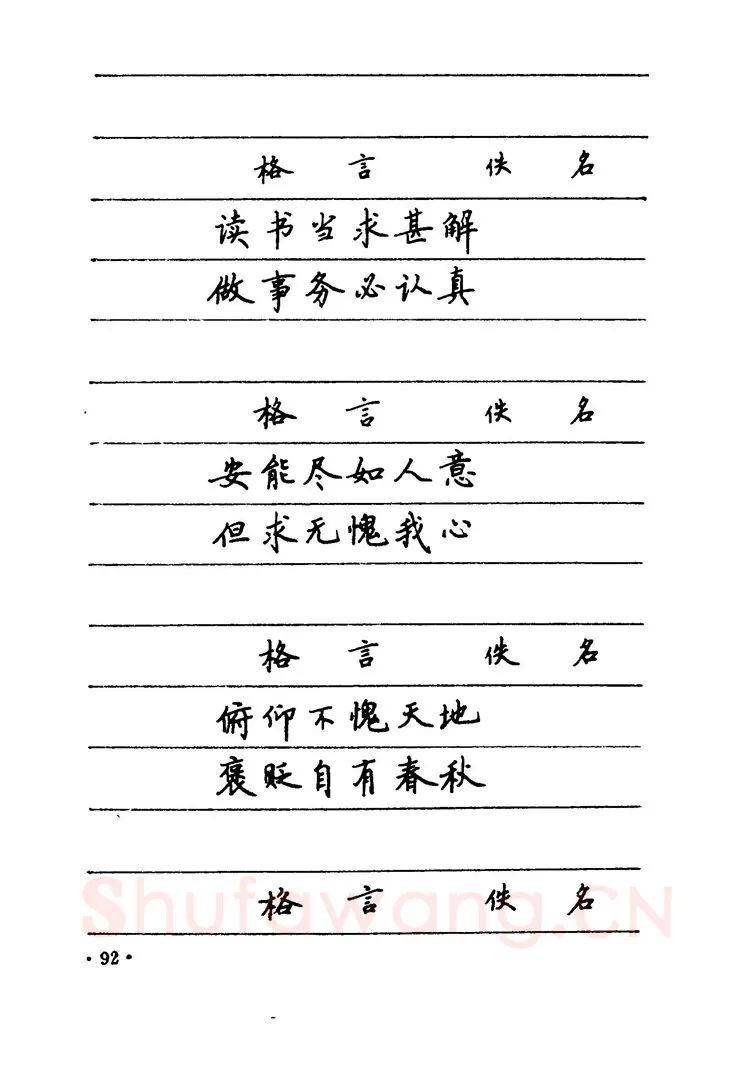 格言 佚名
读书当求甚解
做事务必认真
格言 佚名
安能尽如人意
但求无愧我心
格言 佚名
俯仰不愧天地
褒贬自有春秋
格言 佚名
Shufawang.CN
·92·